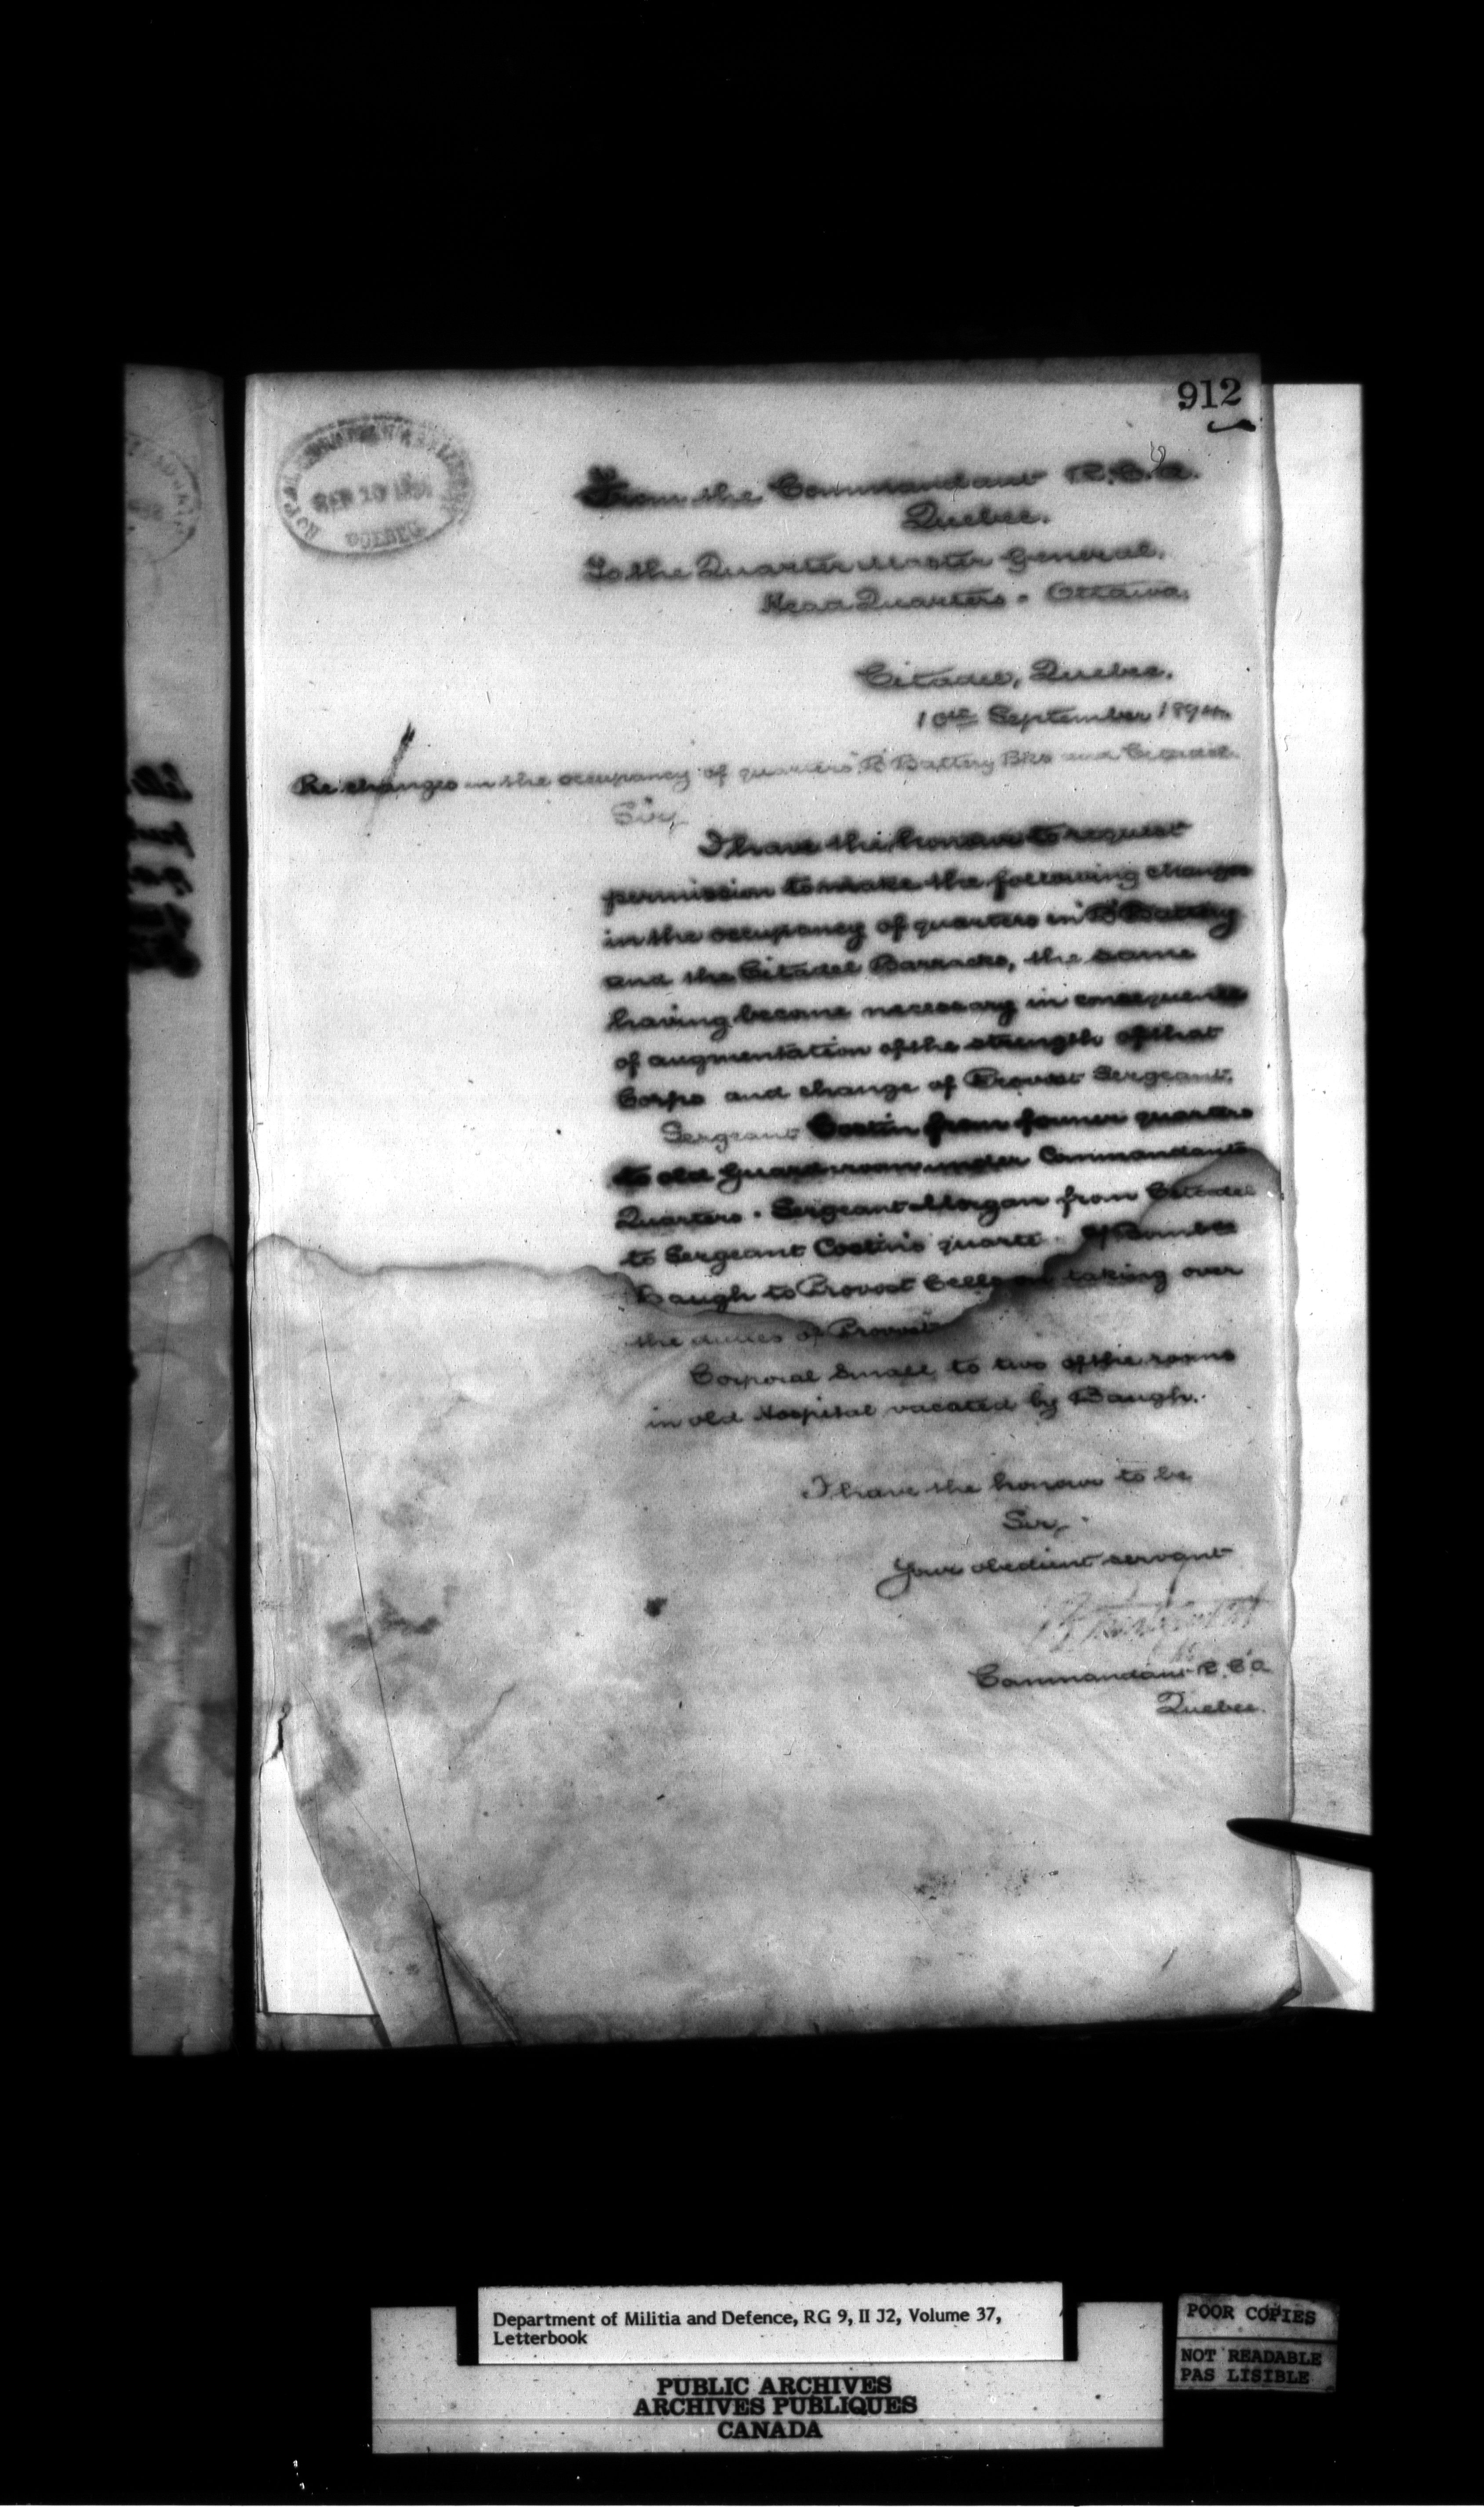 912
ROYAL CANADIAN ARTILLERY
SEP 10 1894
QUEBEC
From the Commandant R.C.A.
Quebec.
To the Quarter Master General.
Head Quarters. Ottawa.
Citadel, Quebec.
10th September 1894.
Re changes in the occupancy of quarters "B" Battery Bks and Citadel.
Sir,
I have the honour to request
permission to make the following changes
in the occupancy of quarters in "B" Battery
and the Citadel Barracks, the same
having become necessary in consequence
of augmentation of the strength of that
Corps and change of Provost Sergeant.
Sergeant Costin from former quarters
to old Guard room under Commandant's
Quarters. Sergeant Morgan from Citadel
to Sergeant Costin's
Baugh to Provost Cells on taking over
the duties of Provost
Corporal Small, to two of the rooms
in old Hospital vacated by Baugh.
I have the honour to be
Sir,
Your obedient servant
Commandant R.C.A
Quebec.
Department of Militia and Defence, RG 9, II J2, Volume 37,
Letterbook
PUBLIC ARCHIVES
ARCHIVES PUBLIQUES
CANADA
POOR COPIES
NOT READABLE
PAS LISIBLE